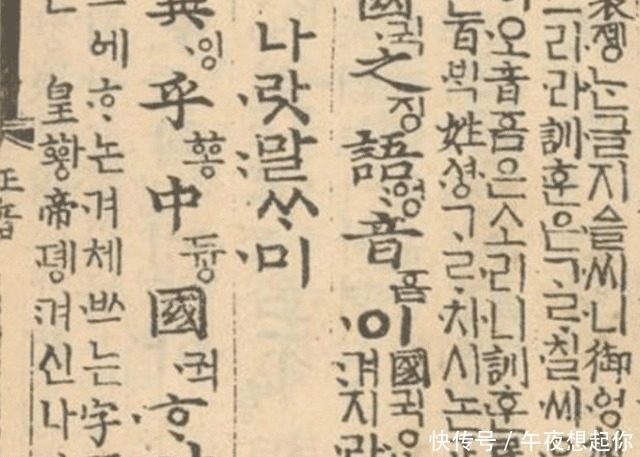 製졩는글지ᅀᅳᆯ씨니御엉
그리라訓훈은ᄀᆞᄅᆞ칠씨
이오音ᅙᅳᆷ은소리니訓훈
는百ᄇᆡᆨ姓셔ᇰᄀᆞᄅᆞ치시논
國귁之징語ᅌᅥᆼ音ᅙᅳᆷ이
國귁
겨지라
나랏말ᄊᆞ미
異잉乎ᅘᅩᆼ中듀ᇰ國귁ᄒᆞ
에ᄒᆞ논겨체ᄡᅳ는字
皇ᅘᅪᇰ帝뎽겨신나
正音
快传号 / 午夜想起你